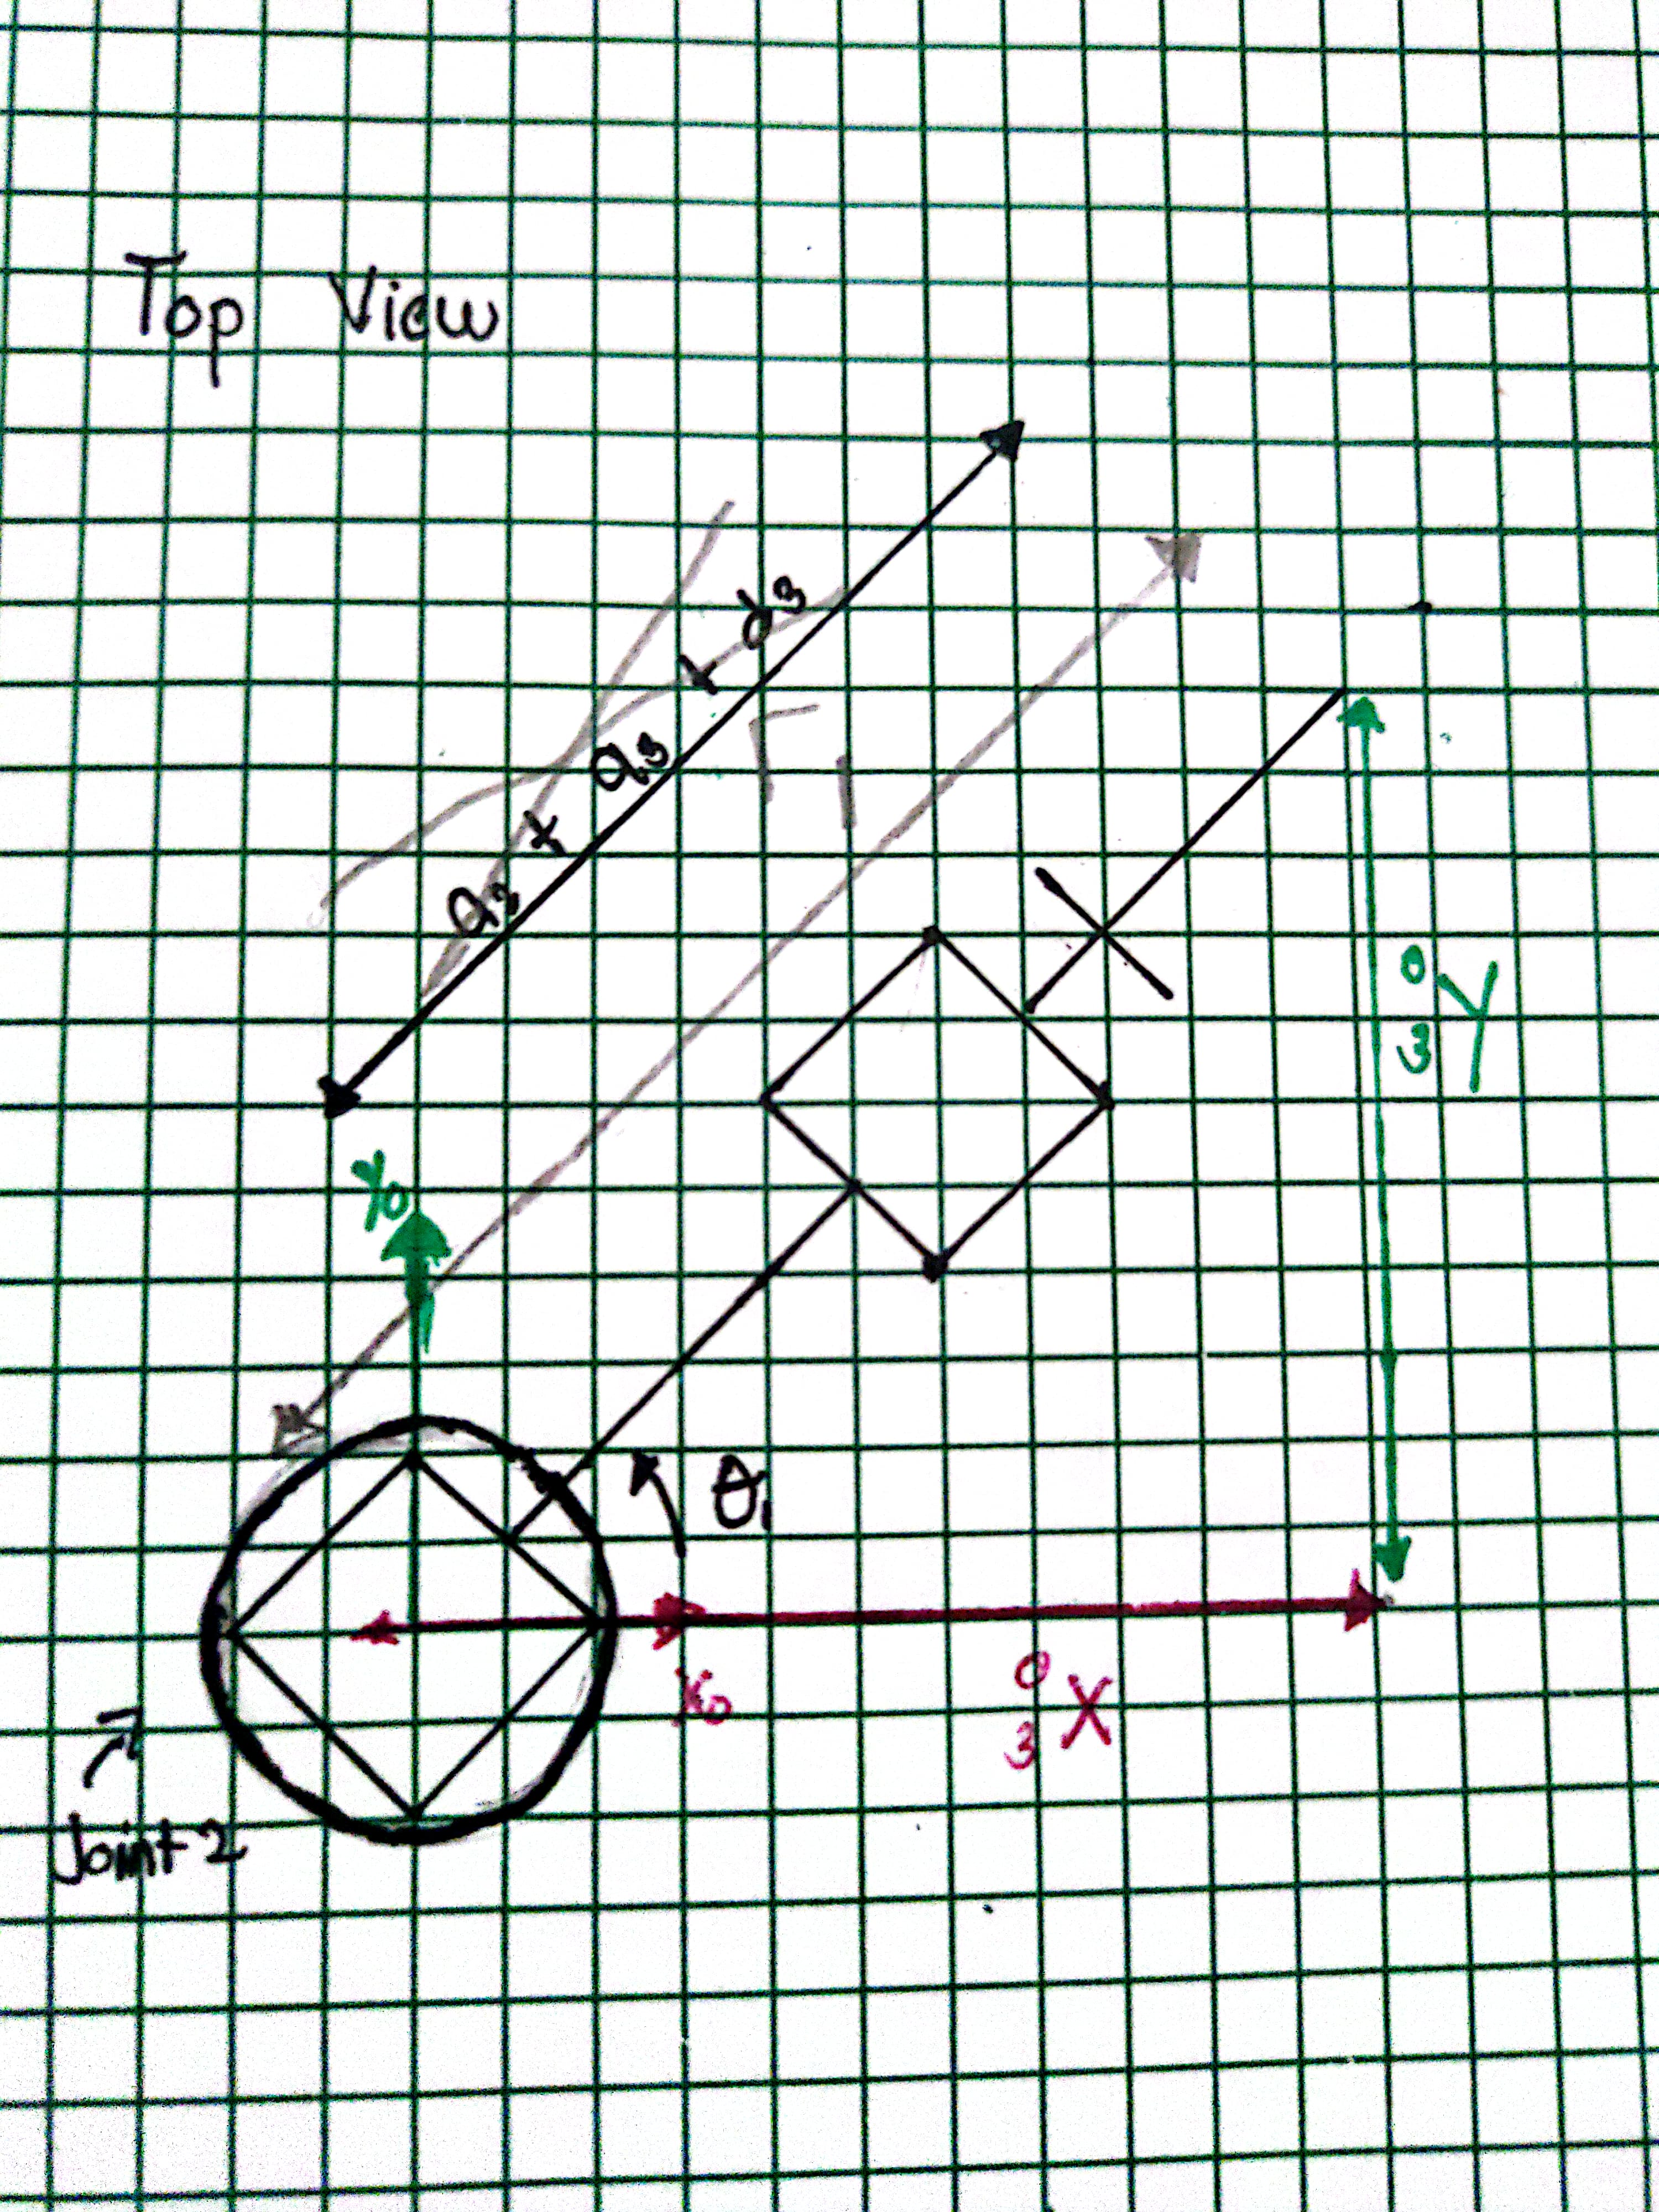 Top View
a2 + a3 + d3
r1
Y0
0
3 Y
θ1
X0
0
3 X
Joint 2